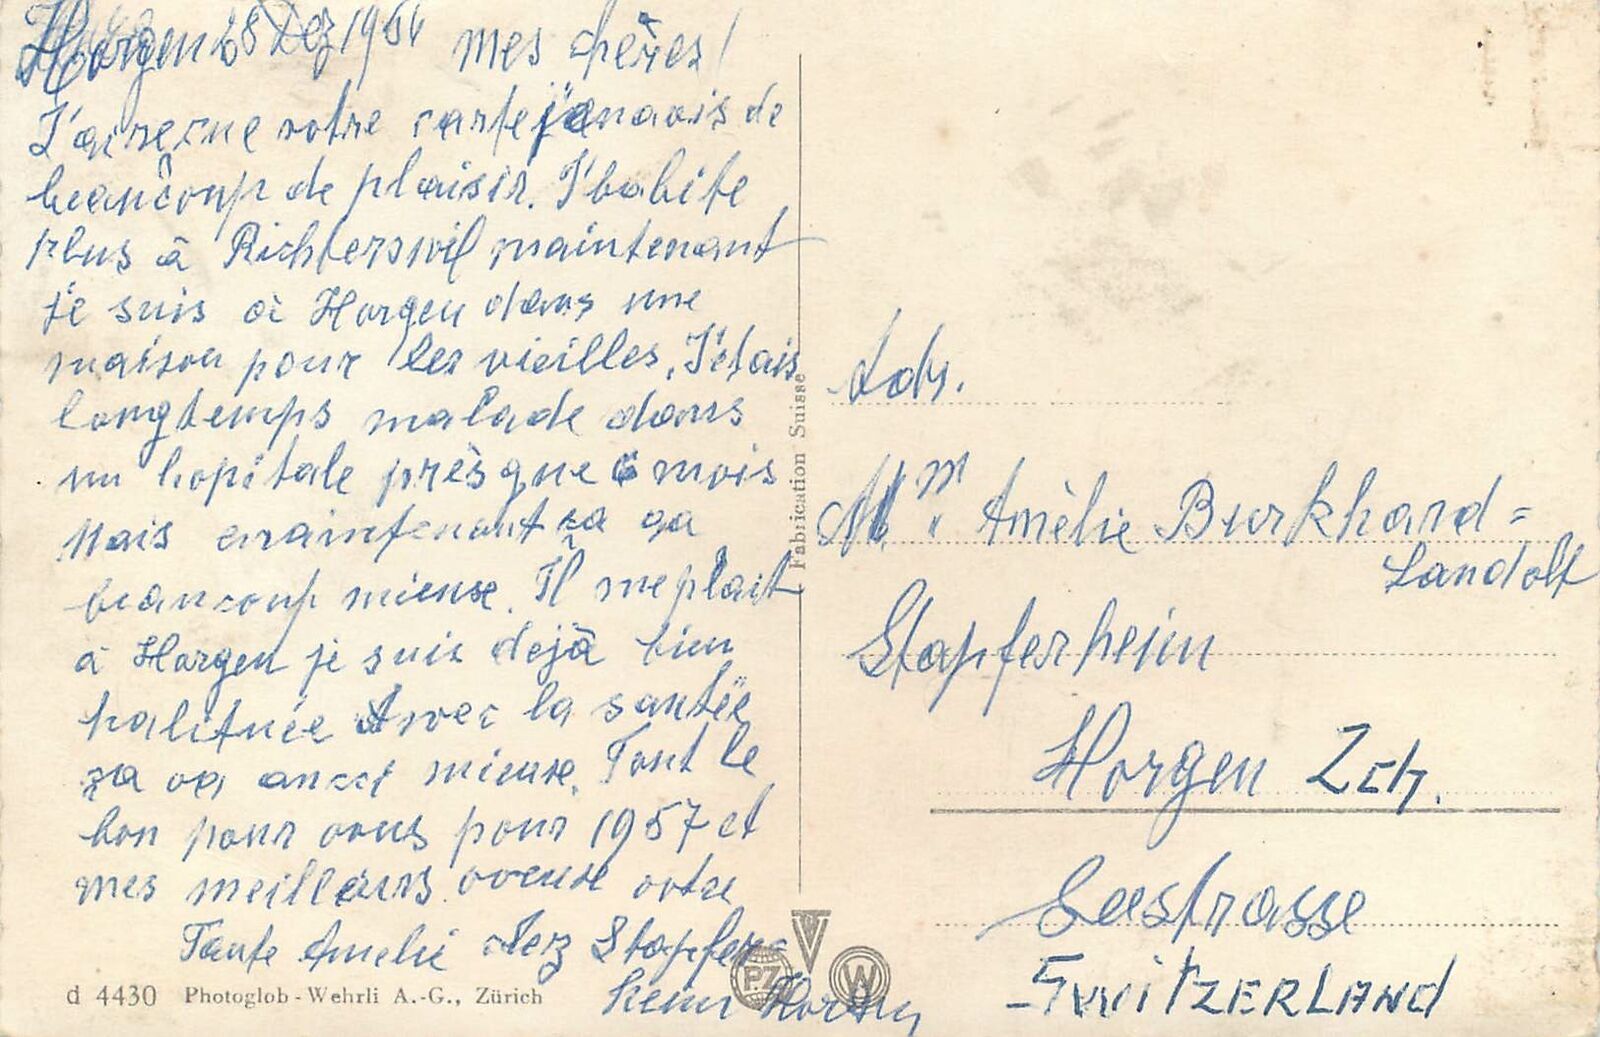 Horgen 28 Dez 1956 mes chères!
J'ai reçue votre carte j'en avais de
beaucoup de plaisir. J'habite
plus à Richterswil maintenant
je suis à Horgen dans une
maison pour les vieilles. J'étais
longtemps malade dans
un hopitale prèsque 6 mois
Mais maintenant ça va
beaucoup mieuse. Il me plait
à Horgen je suis dejà bien
habituée Avec la santée
ça va aussi mieuse. Tout le
bon pour vous pour 1957 et
mes meilleurs voeuse votre
Tante Amelie chez Stapfer-
heim Horgen
d 4430 Photoglob-Wehrli A.-G., Zürich
Fabrication Suisse
PZ
V
W
Adr.
Mm Amèlie Burkhard=
Landolt
Stapferheim
Horgen Zch.
Seestrasse
SWITZERLAND